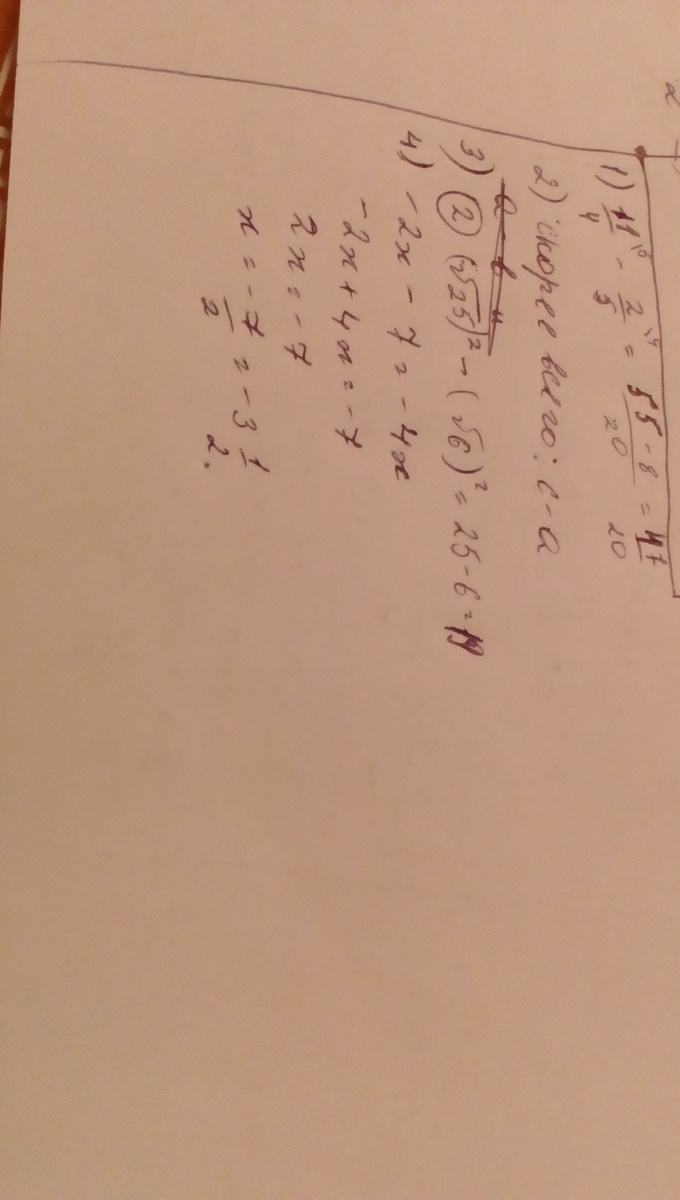 1) 11/4 - 2/5 = 55-8/20 = 47/20
2) скорее всего: c-a
3) ② (√25)² - (√6)² = 25-6=19
4) -2x - 7 = -4x
-2x + 4x = -7
2x = -7
x = -7/2 = -3 1/2.